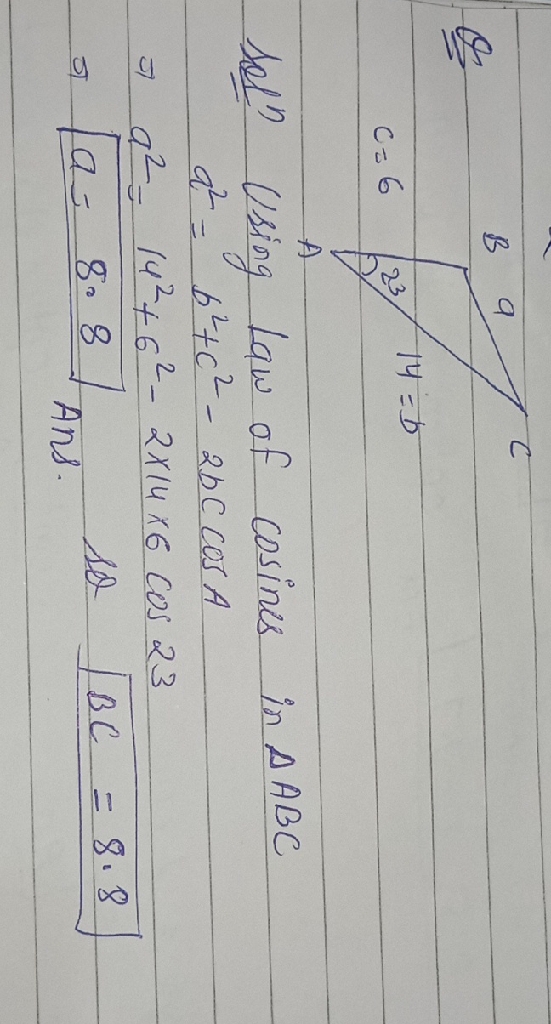 Q.
B a C
c = 6 23 14 = b
A
Solⁿ Using law of cosines in ΔABC
a² = b² + c² - 2bc cos A
⇒ a² = 14² + 6² - 2×14×6 cos 23
⇒ a = 8.8 so BC = 8.8
Ans.